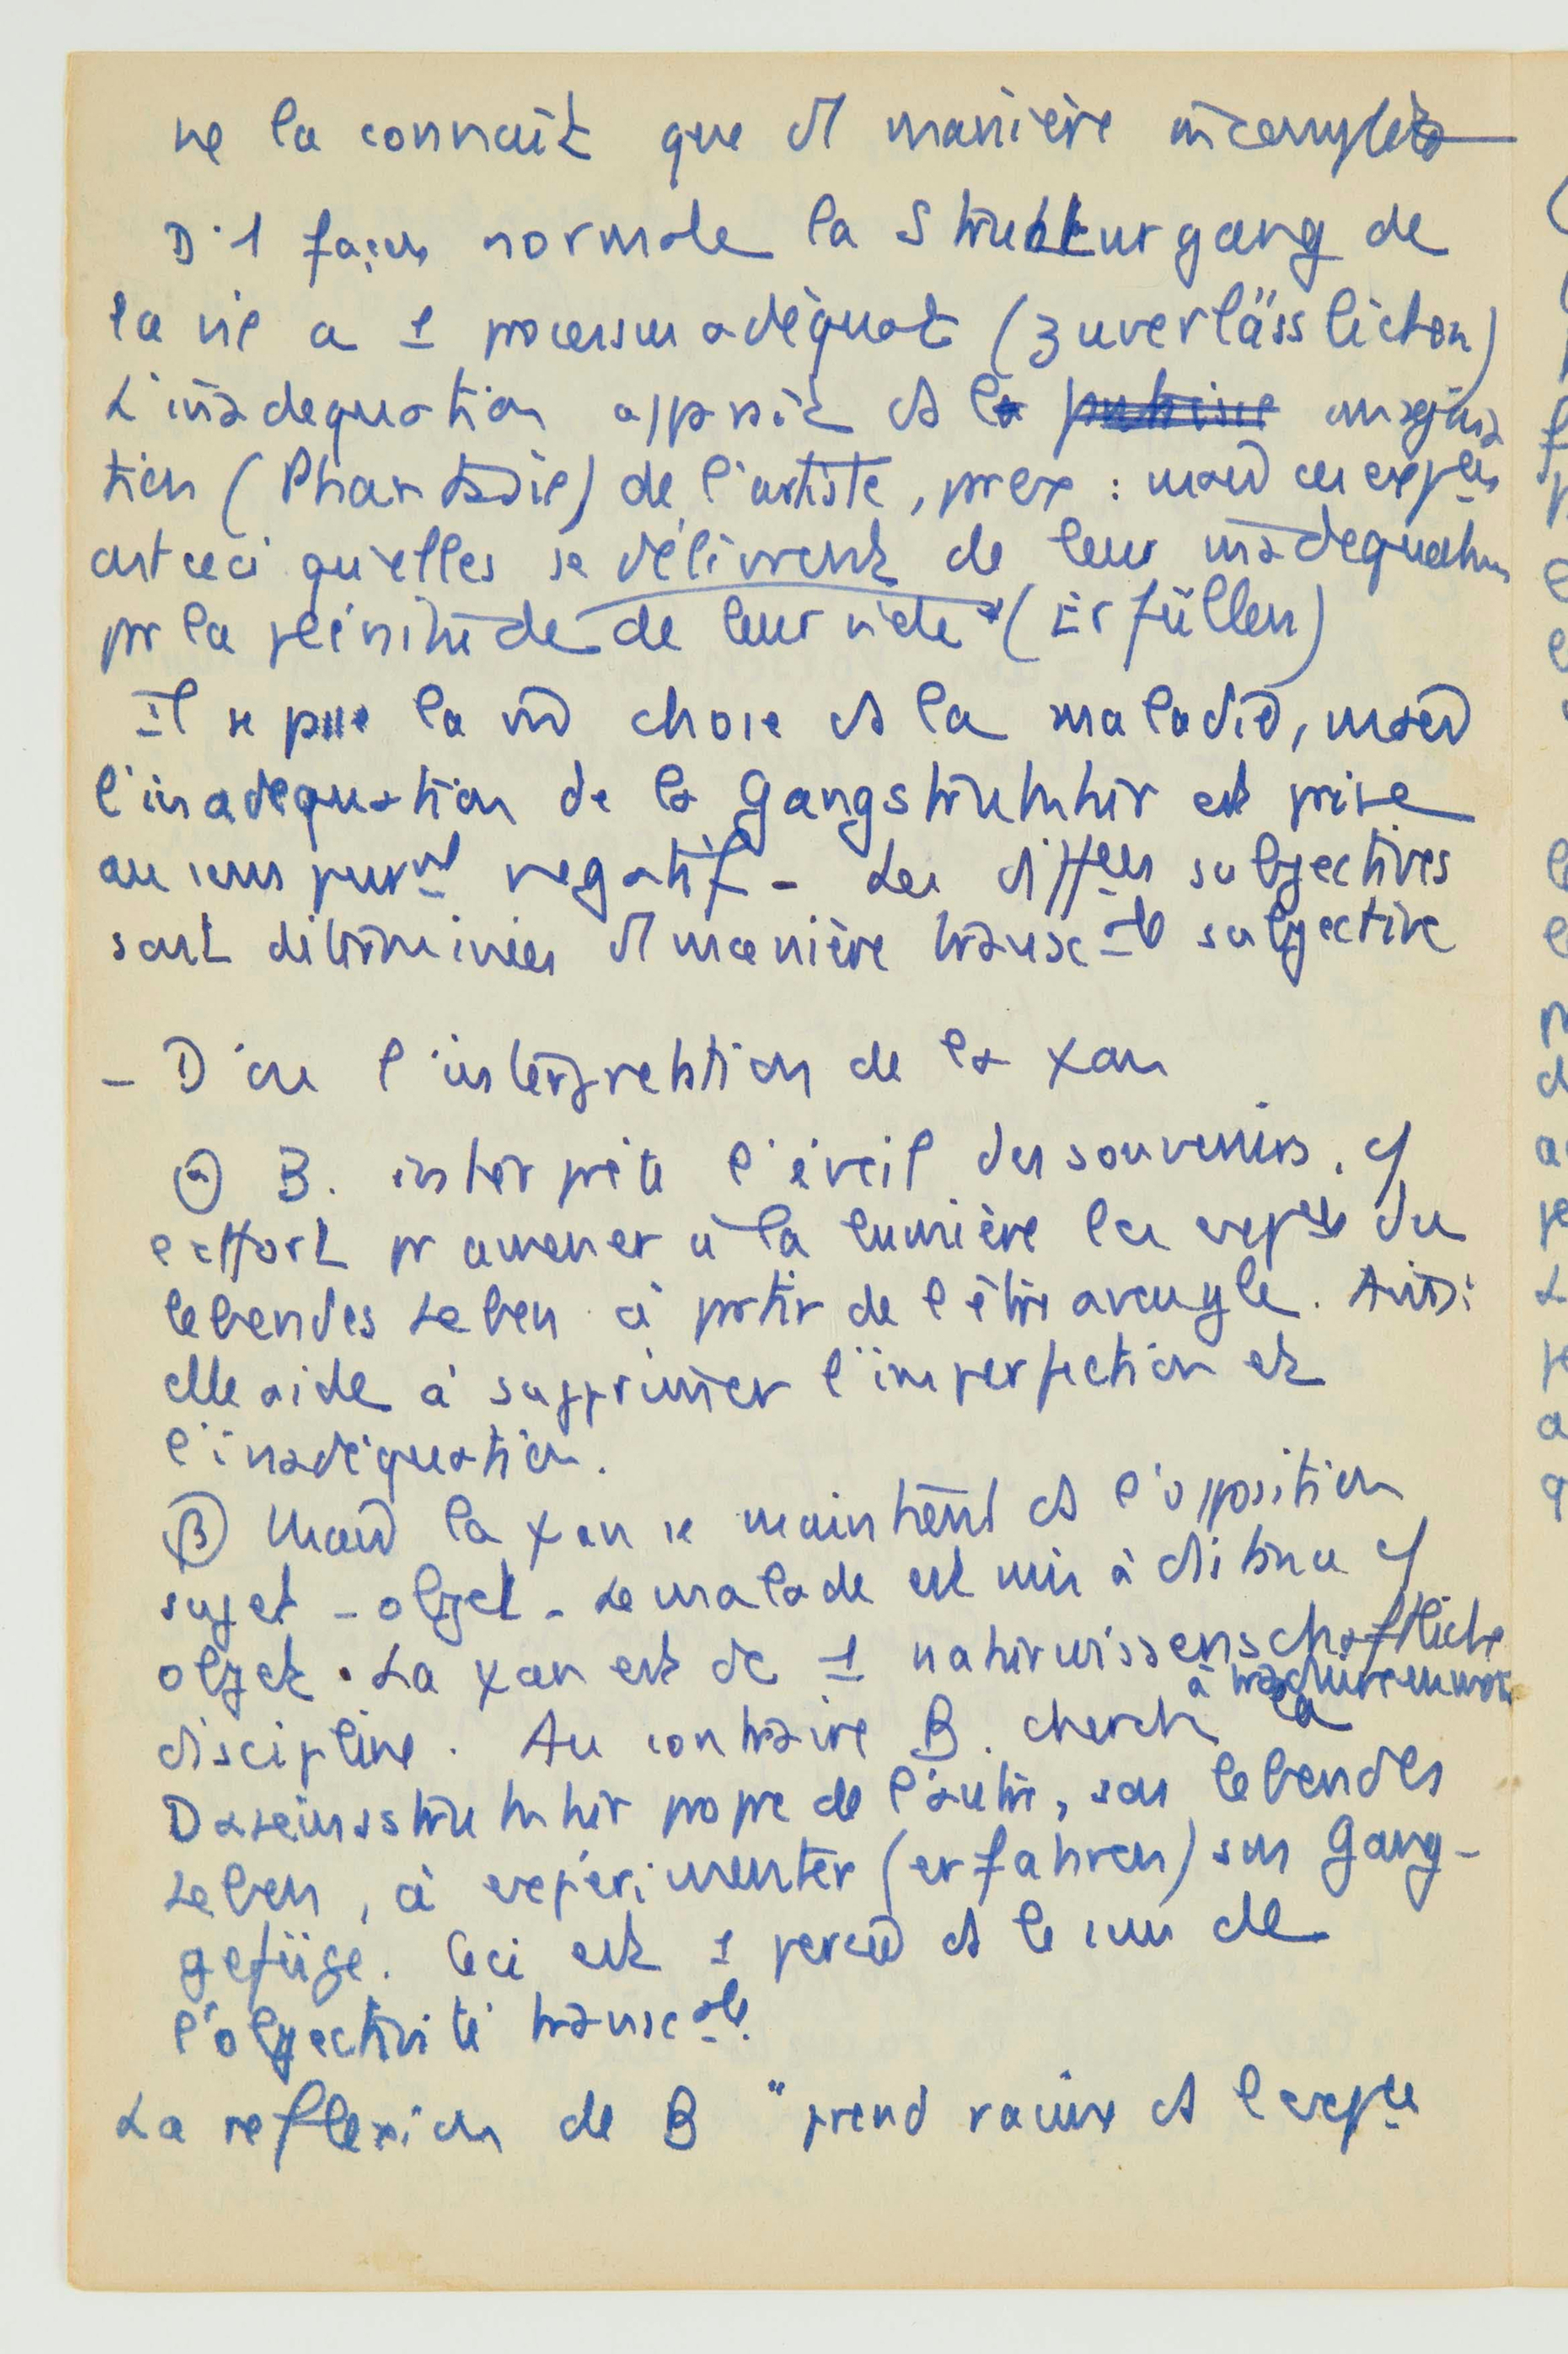 ne la connait que ds manière incomplète
D'1 façon normale la Strukturgang de
la vie a 1 processus adéquat (zuverlässlichen)
L'inadequation apparait ds la imagina
tion (Phantasie) de l'artiste, pr ex : mais ces expces
ont ceci qu'elles se délivrent de leur inadequation
pr la plénitude de leur vide (Erfüllen)
Il se passe la m̂ chose ds la maladie, mais
l'inadequation de la Gangstruktur est prise
au sens purmt negatif - Les diffces subjectives
sont déterminées ds manière transcale subjective
- D'ou l'interprétation de la χan
α B. interprète l'éveil des souvenirs. cf
effort pr amener à la lumière les expces du
lebendes Leben à partir de l'être aveugle. Ainsi
elle aide à supprimer l'imperfection et
l'inadéquation.
β Mais la χan se maintient ds l'opposition
sujet - objet - Le malade est mis à distance cf
objet. La χan est de 1 naturwissenschaftliche
discipline. Au contraire B. cherche à la
Daseinsstruktur propre de l'autre, son lebendes
Leben, à expérimenter (erfahren) son Gang-
gefüge. Ceci est 1 ds le sens de
l'objectivité transcale.
La reflexion de B "prend racine ds l'expce